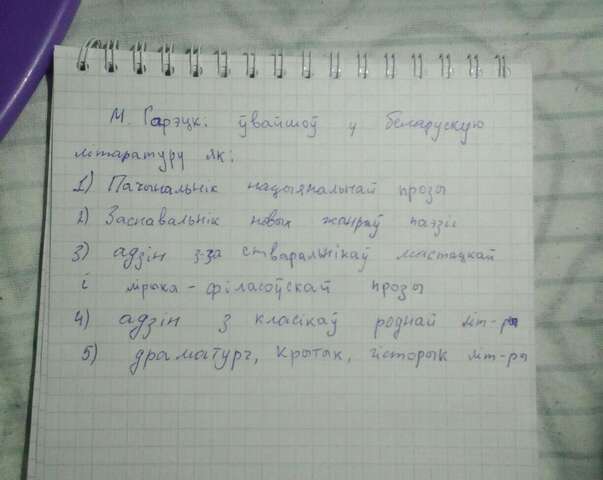 М. Гарэцкі ўвайшоў у беларускую
літаратуру як:
1) Пачынальнік нацыянальнай прозы
2) Заснавальнік новых жанраў паэзіі
3) адзін з-за стваральнікаў мастацкай
і лірыка-філасоўскай прозы
4) адзін з класікаў роднай літ-ры
5) драматург, крытык, гісторык літ-ры